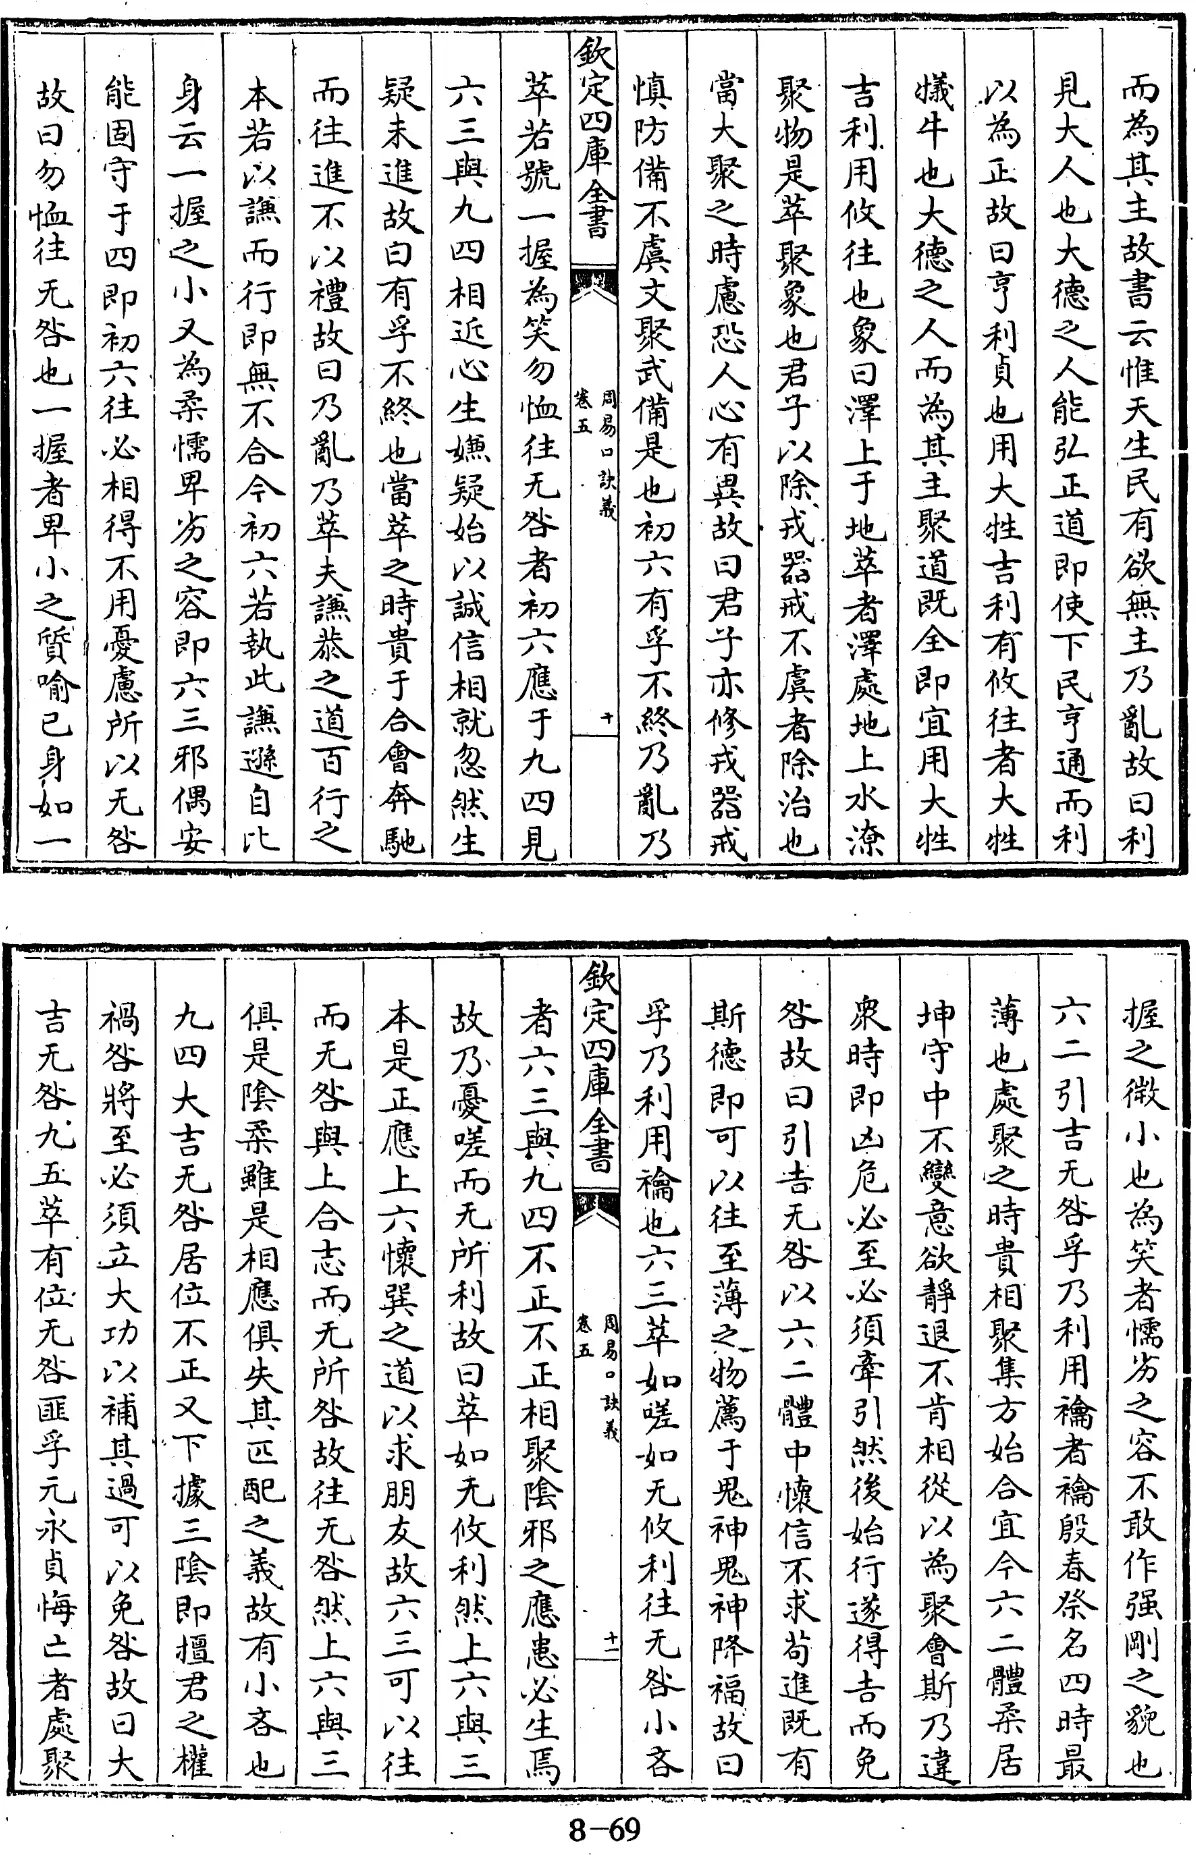 而為其主故書云惟天生民有欲無主乃亂故曰利
見大人也大德之人能弘正道即使下民亨通而利
以為正故曰亨利貞也用大牲吉利有攸往者大牲
犧牛也大德之人而為其主聚道既全即宜用大牲
吉利用攸往也象曰澤上于地萃者澤處地上水潦
聚物是萃聚象也君子以除戎器戒不虞者除治也
當大聚之時慮恐人心有異故曰君子亦修戎器戒
慎防備不虞文聚武備是也初六有孚不終乃亂乃
欽定四庫全書
周易口訣義
卷五
十
萃若號一握為笑勿恤往无咎者初六應于九四見
六三與九四相近心生嫌疑始以誠信相就忽然生
疑未進故曰有孚不終也當萃之時貴于合會奔馳
而往進不以禮故曰乃亂乃萃夫謙恭之道百行之
本若以謙而行即無不合今初六若執此謙遜自比
身云一握之小又為柔懦卑劣之容即六三邪偶安
能固守于四即初六往必相得不用憂慮所以无咎
故曰勿恤往无咎也一握者卑小之質喻己身如一
握之微小也為笑者懦劣之容不敢作强剛之貌也
六二引吉无咎孚乃利用禴者禴殷春祭名四時最
薄也處聚之時貴相聚集方始合宜今六二體柔居
坤守中不變意欲靜退不肯相從以為聚會斯乃違
衆時即凶危必至必須牽引然後始行遂得吉而免
咎故曰引吉无咎以六二體中懷信不求苟進既有
斯德即可以往至薄之物薦于鬼神鬼神降福故曰
孚乃利用禴也六三萃如嗟如无攸利往无咎小吝
欽定四庫全書
周易口訣義
卷五
十一
者六三與九四不正不正相聚陰邪之應患必生焉
故乃憂嗟而无所利故曰萃如无攸利然上六與三
本是正應上六懷巽之道以求朋友故六三可以往
而无咎與上合志而无所咎故往无咎然上六與三
俱是陰柔雖是相應俱失其匹配之義故有小吝也
九四大吉无咎居位不正又下據三陰即擅君之權
禍咎將至必須立大功以補其過可以免咎故曰大
吉无咎九五萃有位无咎匪孚元永貞悔亡者處聚
8-69